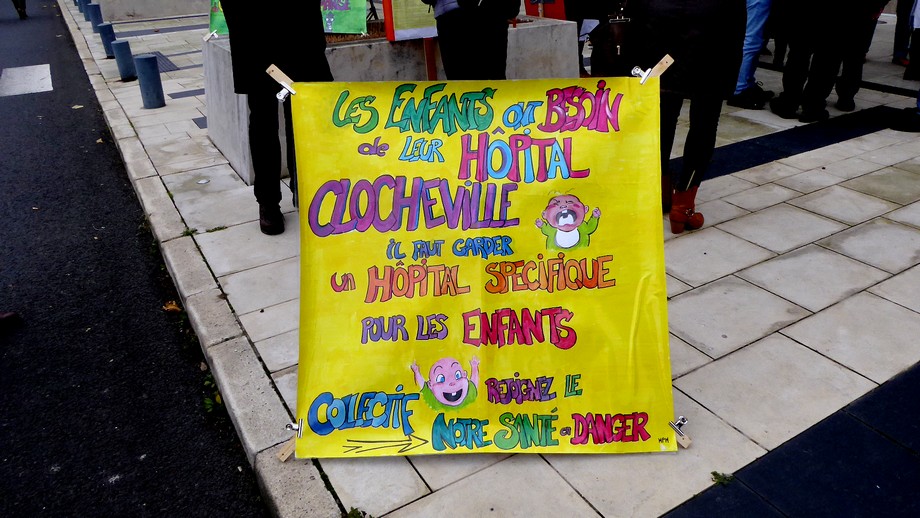 LES ENFANTS ONT BESOIN
de LEUR HÔPITAL
CLOCHEVILLE
iL FAUT GARDER
UN HÔPITAL SPECIFIQUE
POUR LES ENFANTS
REJOIGNEZ LE
COLLECTIF
NOTRE SANTÉ en DANGER